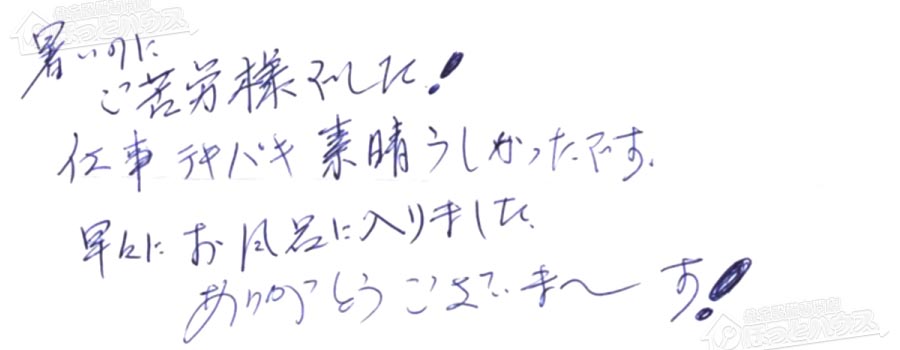 暑いのに
ご苦労様でした!
仕事テキパキ素晴らしかったです.
早々にお風呂に入りました.
ありがとうございま〜す!
ほっとハウス
ほっとハウス